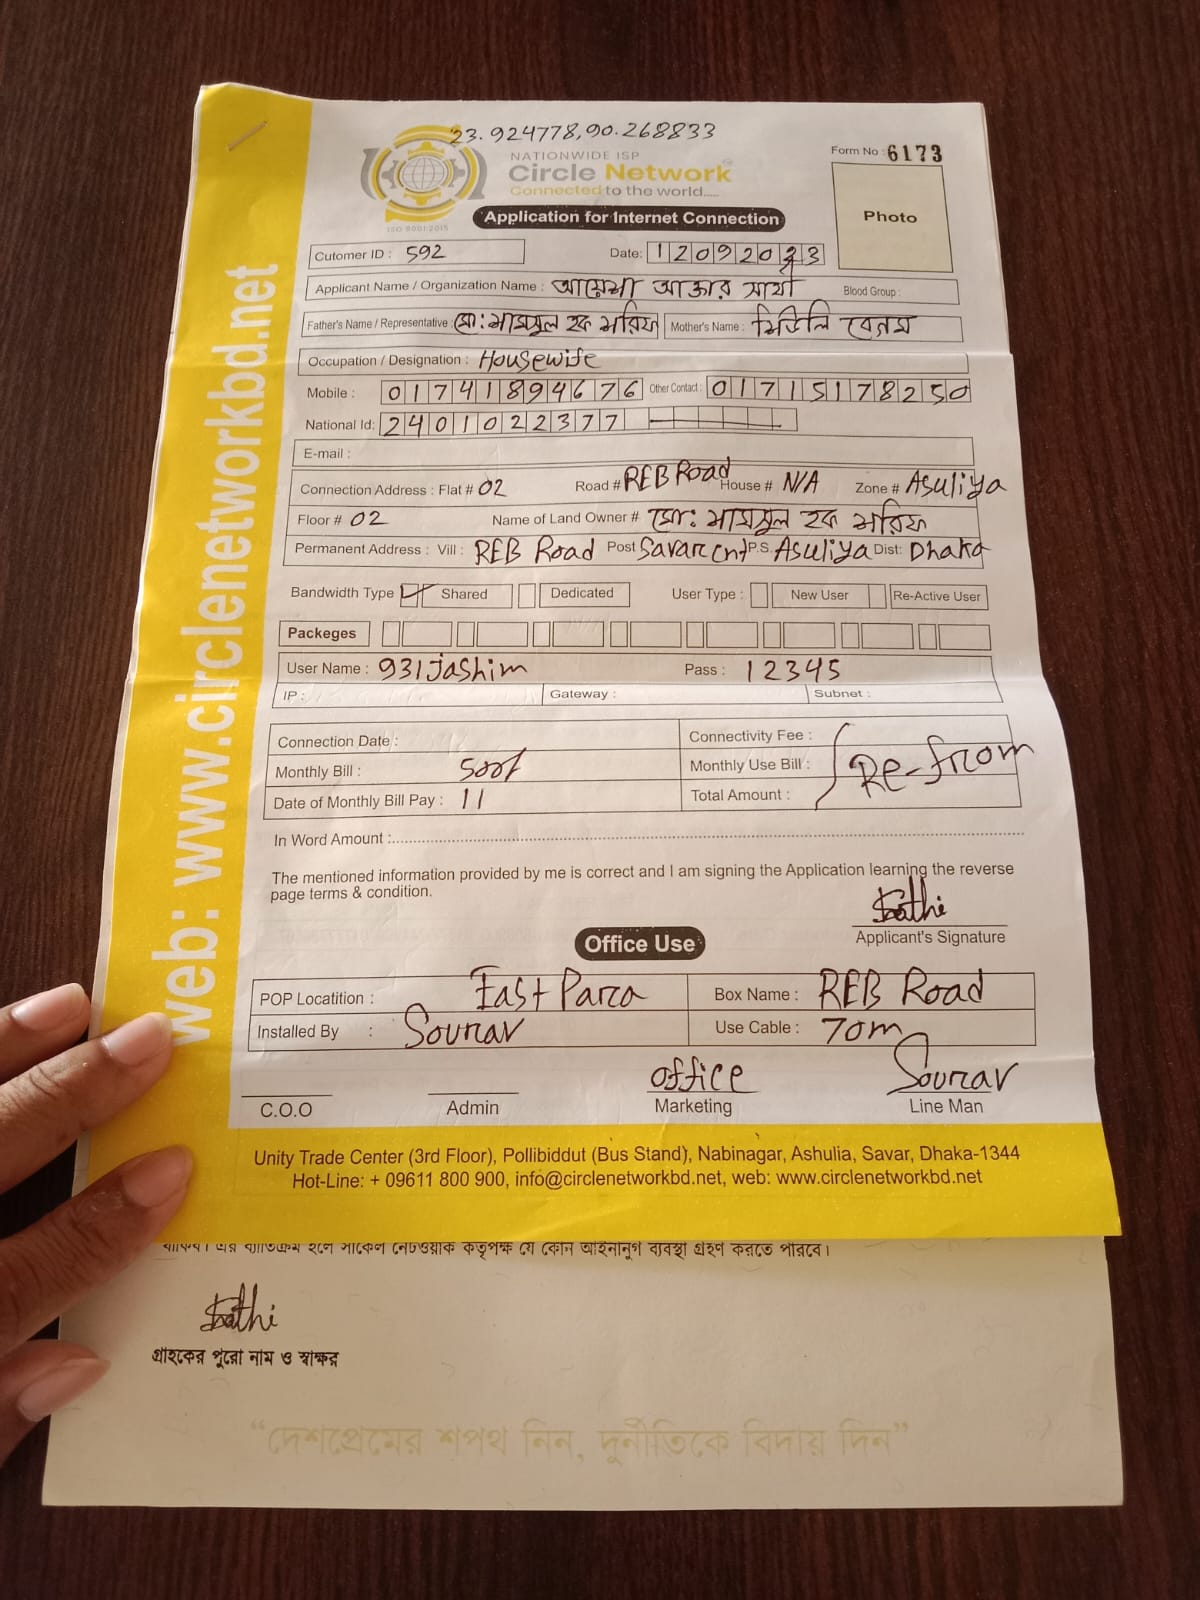 23.924778,90.268833
NATIONWIDE ISP
Circle Network
Connected to the world.....
ISO 9001:2015
Form No : 6173
Photo
Application for Internet Connection
Cutomer ID : 592 Date: 12092023
Applicant Name / Organization Name : আয়েশা আক্তার সাথী Blood Group :
Father's Name / Representative : মো: শামসুল হক শরিফ Mother's Name : শিউলি বেগম
Occupation / Designation : Housewife
Mobile : 01741894676 Other Contact : 01715178250
National Id: 2401022377
E-mail :
Connection Address : Flat # 02 Road # REB Road House # N/A Zone # Asuliya
Floor # 02 Name of Land Owner # মো: শামসুল হক শরিফ
Permanent Address : Vill : REB Road Post Savar cnt P.S. Asuliya Dist: Dhaka
Bandwidth Type Shared Dedicated User Type : New User Re-Active User
Packeges
User Name : 931jashim Pass : 12345
IP : Gateway : Subnet :
Connection Date : Connectivity Fee :
Monthly Bill : 500/ Monthly Use Bill : Re-from
Date of Monthly Bill Pay : 11 Total Amount :
In Word Amount :
The mentioned information provided by me is correct and I am signing the Application learning the reverse
page terms & condition.
Sathi
Applicant's Signature
Office Use
POP Locatition : East Para Box Name : REB Road
Installed By : Sourav Use Cable : 70m
office Sourav
C.O.O Admin Marketing Line Man
Unity Trade Center (3rd Floor), Pollibiddut (Bus Stand), Nabinagar, Ashulia, Savar, Dhaka-1344
Hot-Line: + 09611 800 900, info@circlenetworkbd.net, web: www.circlenetworkbd.net
web: www.circlenetworkbd.net
থাকিব। এর ব্যাতিক্রম হলে সার্কেল নেটওয়ার্ক কর্তৃপক্ষ যে কোন আইনানুগ ব্যবস্থা গ্রহণ করতে পারবে।
Sathi
গ্রাহকের পুরো নাম ও স্বাক্ষর
“দেশপ্রেমের শপথ নিন, দুর্নীতিকে বিদায় দিন”